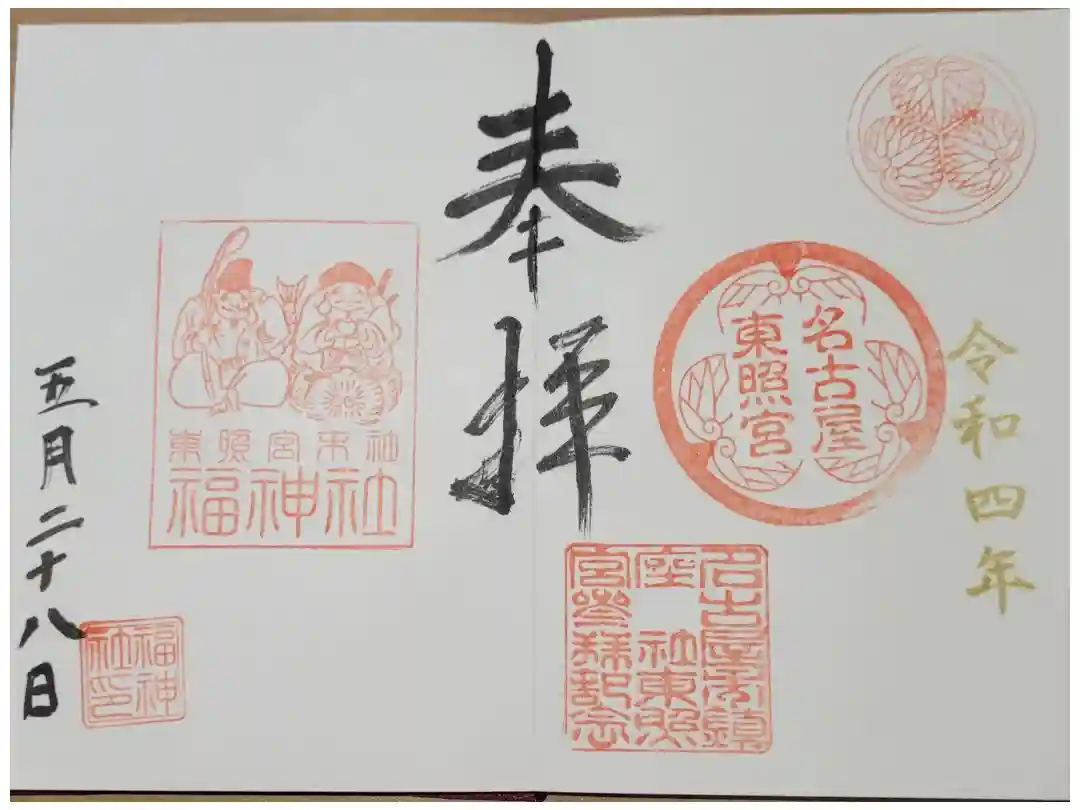 令和四年
名古屋
東照宮
名古屋市鎮
座 社東照
宮参拝記念
奉拝
東照宮末社
福神社
福神
社印
五月二十八日